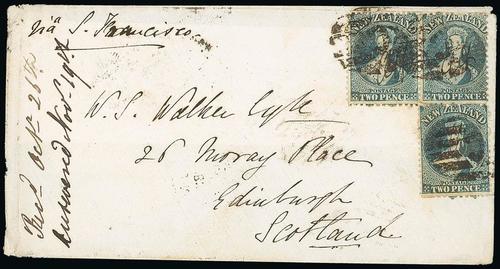 via S. Francisco
NEW ZEALAND
POSTAGE
TWO PENCE
NEW ZEALAND
POSTAGE
TWO PENCE
NEW ZEALAND
POSTAGE
TWO PENCE
W. S. Walker
26 Moray Place
Edinburgh
Scotland
Recd. Octr. 26th
Answered Novr. 19th